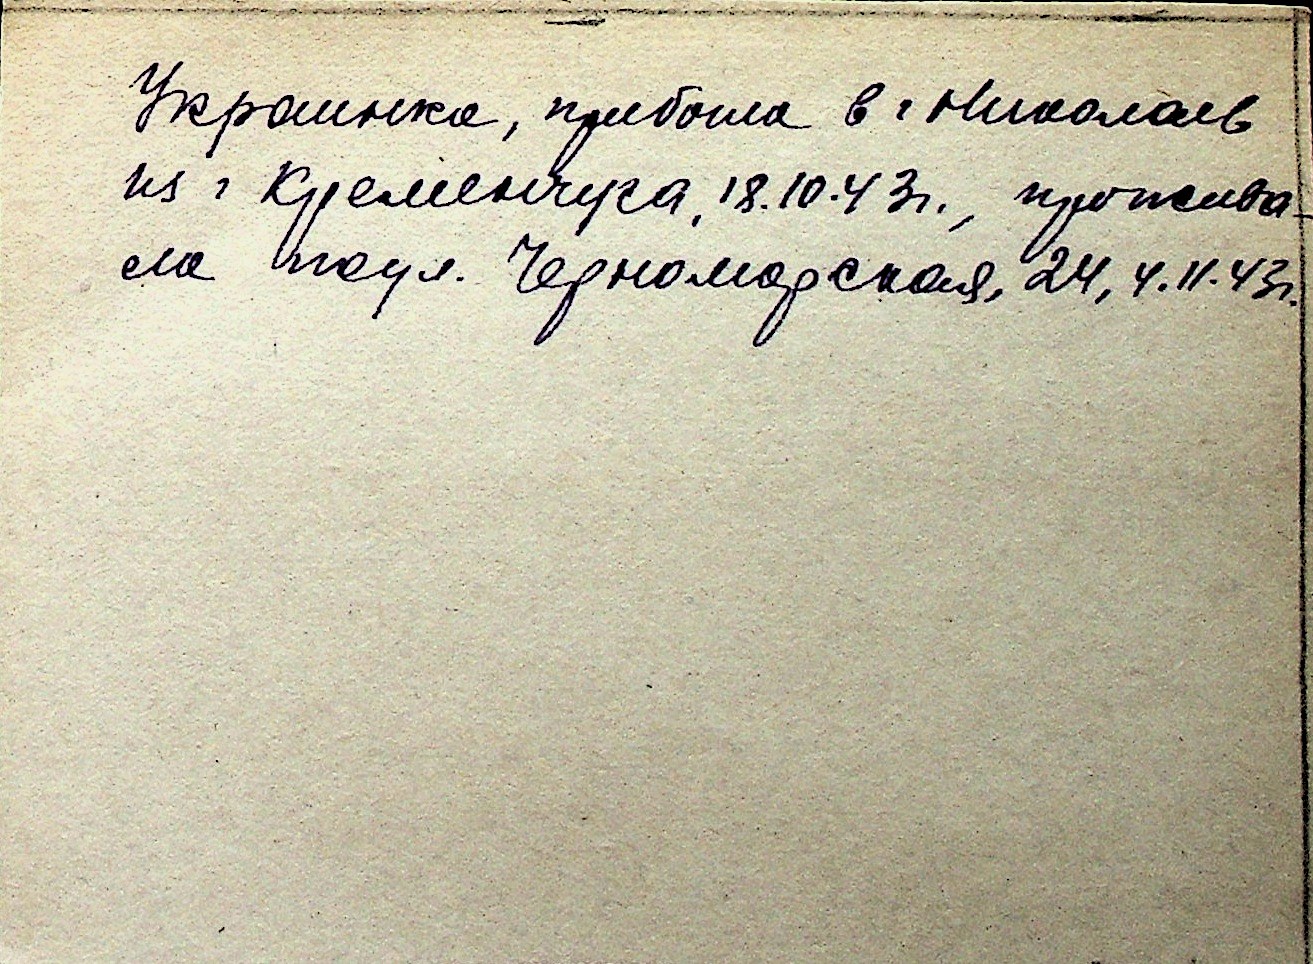 Украинка, прибыла в г Николаев
из г Кременчуга, 18.10.43г., прожива-
ла по ул. Черноморская, 24, 4.11.43г.